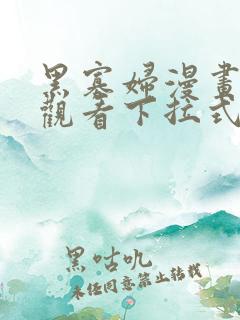 黑寡婦漫畫
觀看下拉式
黑咕呎
未经同意禁止转载